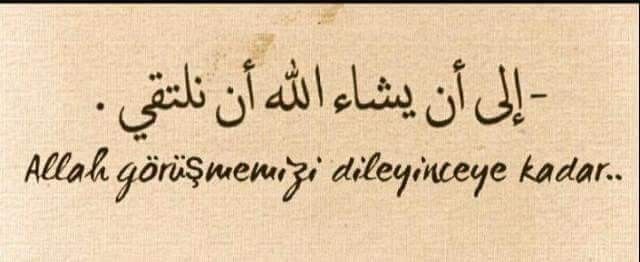 -إلى أن يشاء الله أن نلتقي .
Allah görüşmemizi dileyinceye kadar..